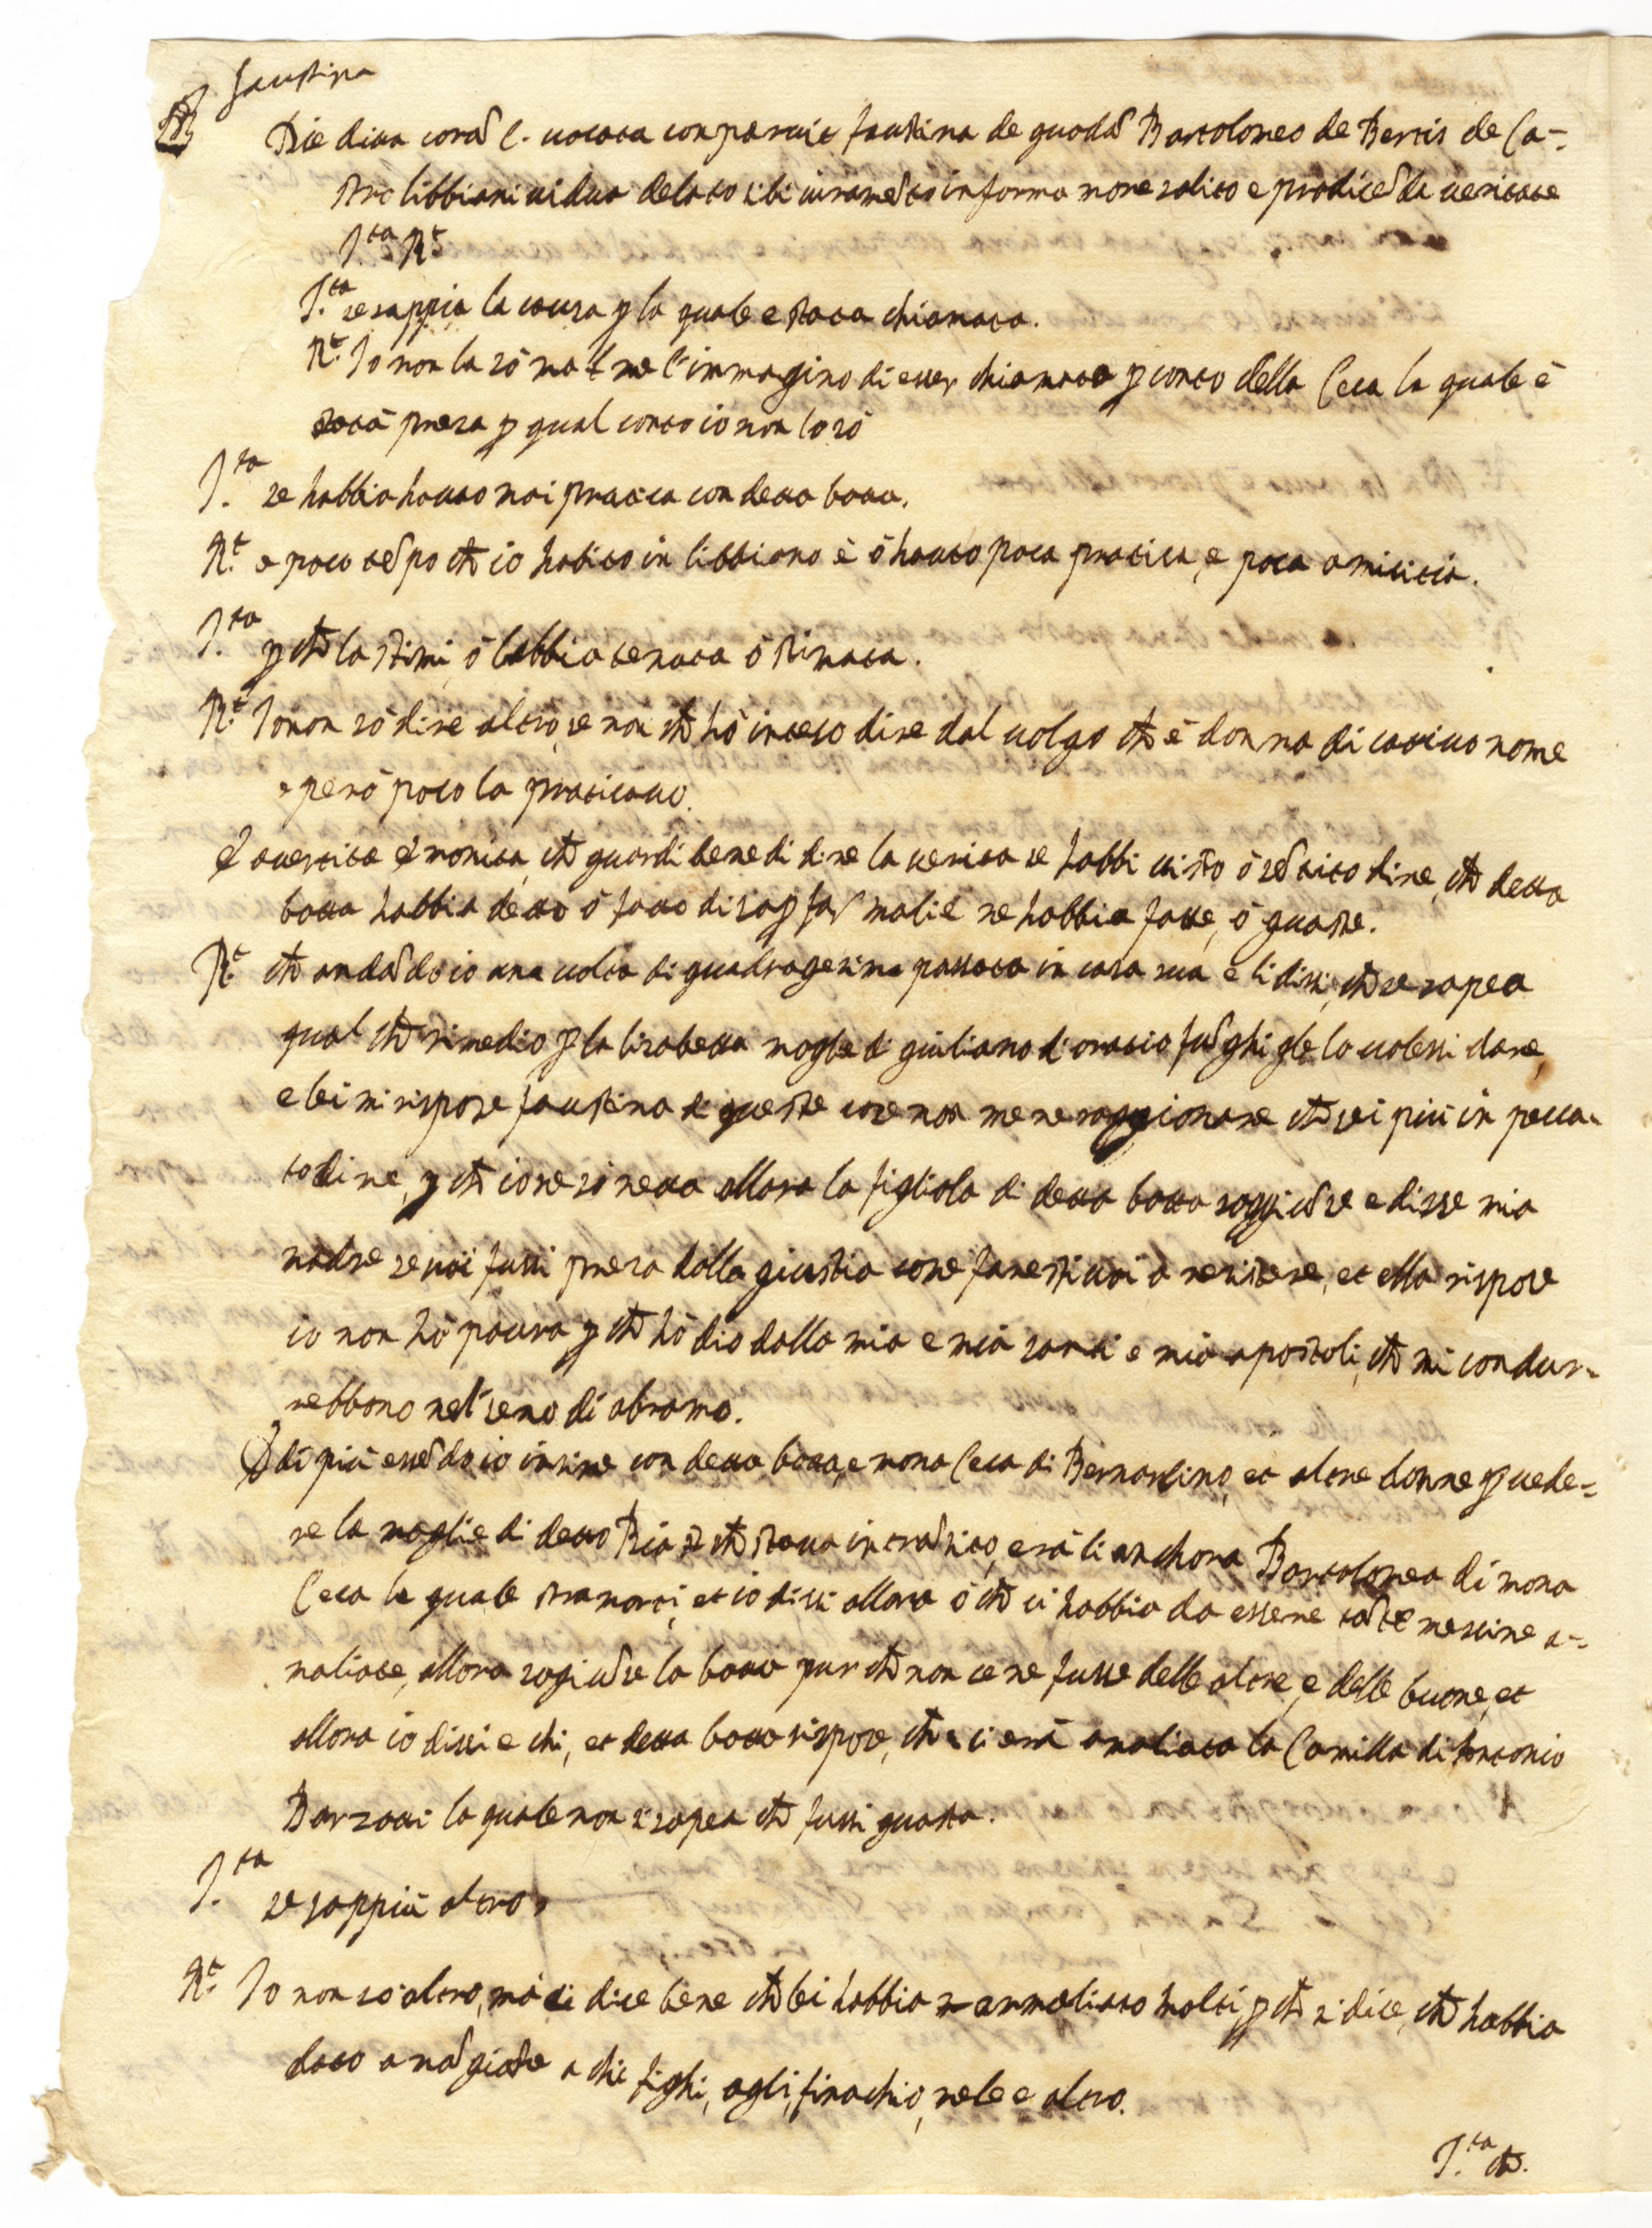 faustina
Die dicta corã C. uocata conparuit faustina de quodã Bartolomeo de Bertis de Ca-
stro libbiani uidua delato sibi iuramẽto in forma more solito e pro dicẽda ueritate
J.ta R.t
J.ta se sappia la causa p la quale e stata chiamata.
R.t Jo non la sò ma me l'immagino di esser chiamata p conto della Ceca la quale è
stata presa p qual conto io non lo sò
J.ta se habbia hauto mai pratica con detta botta.
R.t e poco tẽpo ch io habito in libbiano è ò hauto poca pratica, e poca amicitia.
J.ta p ch la stimi, ò l'abbia tenata ò stimata.
R.t Jo non sò dire altro, se non ch hò inteso dire dal uolgo ch è donna di cattiuo nome
e però poco la praticauo.
Et auertita et monita, ch guardi bene di dire la uerita se habbi uisto ò sẽtito dire, ch detta
botta habbia detto ò fatto di sap far malie ne habbia fatte, ò guaste.
R.t ch andãdo io una uolta di quadragesima passata in casa sua e li dissi, ch se sapea
qual ch rimedio p la lisabetta moglie di giuliano di oratio fũghi gle lo uolessi dare,
e lei mi rispose faustina di queste cose non me ne raggionare ch sei più in pecca-
to di me, p ch io ne sò netta allora la figliola di detta botta soggiũse e disse mia
madre se uoi fussi presa dalla giustia come faresti uoi a resistere, et ella rispose
io non hò paura p ch hò dio dalla mia e mia santi e mia apostoli, ch mi condur-
rebbono nel seno di abramo.
Et di più essẽdo io insime con detta botta, e mona Ceca di Bernardino, et altre donne p uede-
re la moglie di detto Bia ch staua in trãsito, erã li anchora Bartolomea di mona
Ceca la quale tramorti, et io dissi allora ò ch ci habbia da essere tãte meschine a-
maliate, allora sogiũse la botta pur ch non ce ne fusse delle altre, e delle buone, et
allora io dissi e chi, et detta botta rispose, ch ci era amaliata la Camilla di Antonio
Barzotti la quale non si sapea ch fussi guasta.
J.ta se sappia altro.
R.t Jo non sò altro, mà si dice bene ch lei habbia ammaliato molti p ch si dice, ch habbia
dato a mãgiare a chi fighi, agli, finochio, mele e altro.
J.ta ch.